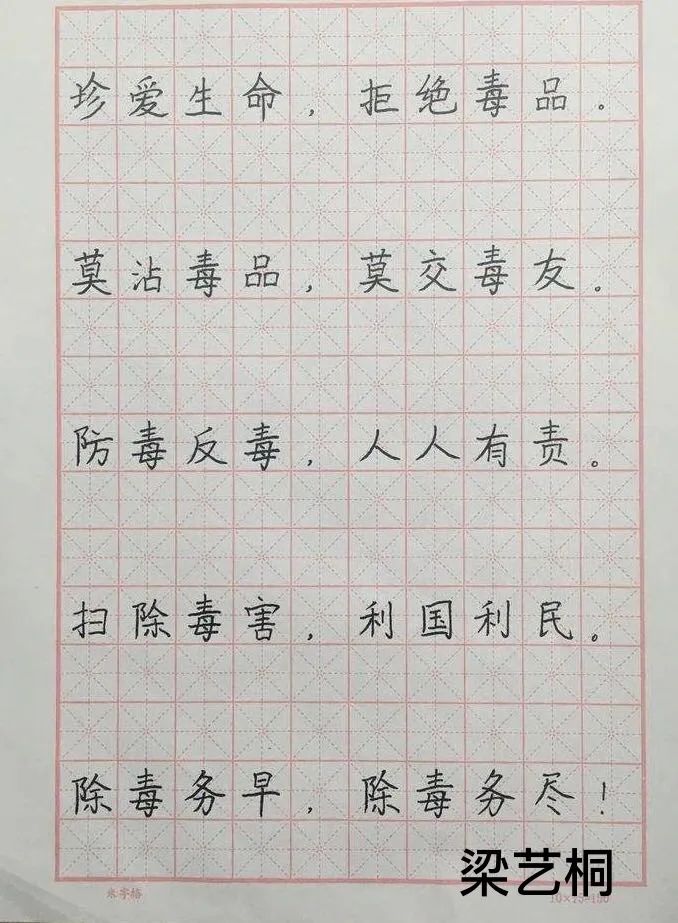 珍爱生命，拒绝毒品。
莫沾毒品，莫交毒友。
防毒反毒，人人有责。
扫除毒害，利国利民。
除毒务早，除毒务尽！
梁艺桐
米字格
10×15=150